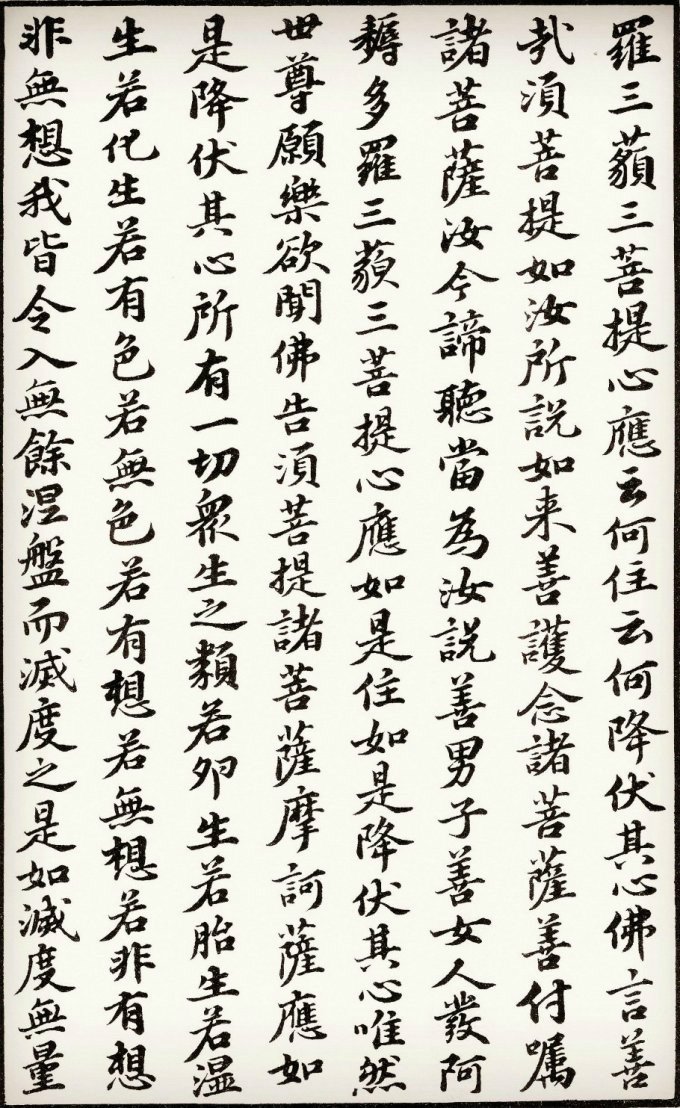 羅三藐三菩提心應云何住云何降伏其心佛言善
哉湏菩提如汝所説如来善護念諸菩薩善付嘱
諸菩薩汝今諦聽當為汝説善男子善女人發阿
耨多羅三藐三菩提心應如是住如是降伏其心唯然
世尊願樂欲聞佛告湏菩提諸菩薩摩訶薩應如
是降伏其心所有一切衆生之類若卵生若胎生若湿
生若化生若有色若無色若有想若無想若非有想
非無想我皆令入無餘涅盤而滅度之是如滅度無量